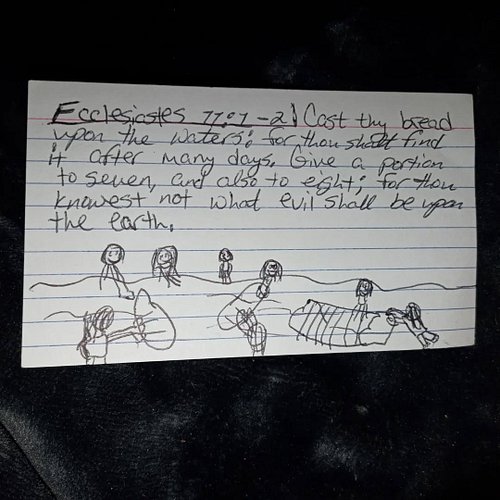 Ecclesiastes 11:1-2| Cast thy bread
upon the waters: for thou shalt find
it after many days. Give a portion
to seven, and also to eight; for thou
knowest not what evil shall be upon
the earth.